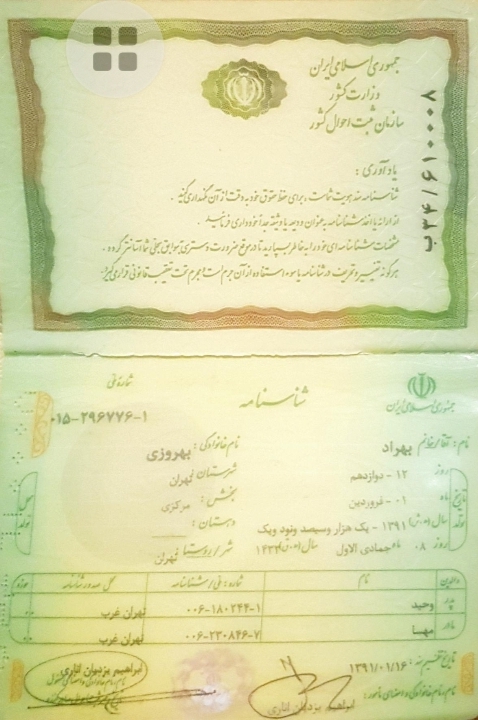 جمهوری اسلامی ایران
وزارت کشور
سازمان ثبت احوال کشور
ب۳۴/۶۱۰۰۰۸
یادآوری :
شناسنامه سند هویت شماست، برای حفظ حقوق خود به دقت از آن نگهداری کنید.
از ارائه یا اخذ شناسنامه به عنوان ودیعه یا وثیقه جداً خودداری فرمائید.
مشخصات شناسنامه ای خود را به خاطر بسپارید تا در موقع ضرورت دسترسی به سوابق سجلی شما آسانتر گردد.
هرگونه تغییر و تحریف در شناسنامه یا سوء استفاده از آن جرم است و مجرم تحت تعقیب قانونی قرار می گیرد.
جمهوری اسلامی ایران
شناسنامه
شماره ملی
۰۱۵-۲۹۶۷۷۶-۱
نام : آقا/خانم بهراد
نام خانوادگی : بهروزی
تاریخ تولد
روز ۱۲ - دوازدهم
ماه ۰۱ - فروردین
سال (ه.ش) ۱۳۹۱ - یک هزار وسیصد ونود ویک
روز ۰۸ ماه جمادی الاول سال (ه.ق) ۱۴۳۳
محل تولد
شهرستان : تهران
بخش : مرکزی
دهستان :
شهر/روستا تهران
والدین نام شماره ملی/شناسنامه محل صدور شناسنامه حوزه
پدر وحید ۰۰۶-۱۸۰۲۴۴-۱ تهران غرب
مادر مهسا ۰۰۶-۲۳۰۸۴۶-۷ تهران غرب
تاریخ تنظیم سند : ۱۳۹۱/۰۱/۱۶
نام، نام خانوادگی و امضای مأمور : ابراهیم یزدیان اناری
ابراهیم یزدیان اناری